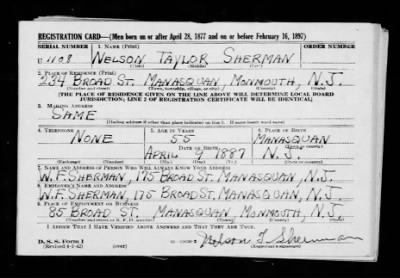 REGISTRATION CARD—(Men born on or after April 28, 1877 and on or before February 16, 1897)
SERIAL NUMBER 1. NAME (Print) ORDER NUMBER
U 1108 NELSON TAYLOR SHERMAN
(First) (Middle) (Last)
2. PLACE OF RESIDENCE (Print)
234 BROAD ST. MANASQUAN, MONMOUTH, N.J.
(Number and street) (Town, township, village, or city) (County) (State)
[THE PLACE OF RESIDENCE GIVEN ON THE LINE ABOVE WILL DETERMINE LOCAL BOARD
JURISDICTION; LINE 2 OF REGISTRATION CERTIFICATE WILL BE IDENTICAL]
3. MAILING ADDRESS
SAME
[Mailing address if other than place indicated on line 2. If same insert word same]
4. TELEPHONE 5. AGE IN YEARS 6. PLACE OF BIRTH
NONE 55 MANASQUAN
DATE OF BIRTH (Town or county)
APRIL 9 1887 N.J.
(Exchange) (Number) (Mo.) (Day) (Yr.) (State or country)
7. NAME AND ADDRESS OF PERSON WHO WILL ALWAYS KNOW YOUR ADDRESS
W.F. SHERMAN, 175 BROAD ST. MANASQUAN, N.J.
8. EMPLOYER'S NAME AND ADDRESS
W.F. SHERMAN, 175 BROAD ST. MANASQUAN, N.J.
9. PLACE OF EMPLOYMENT OR BUSINESS
85 BROAD ST. MANASQUAN, MONMOUTH, N.J.
(Number and street or R. F. D. number) (Town) (County) (State)
I AFFIRM THAT I HAVE VERIFIED ABOVE ANSWERS AND THAT THEY ARE TRUE.
D. S. S. Form 1
(Revised 4-1-42) (over) Nelson T. Sherman